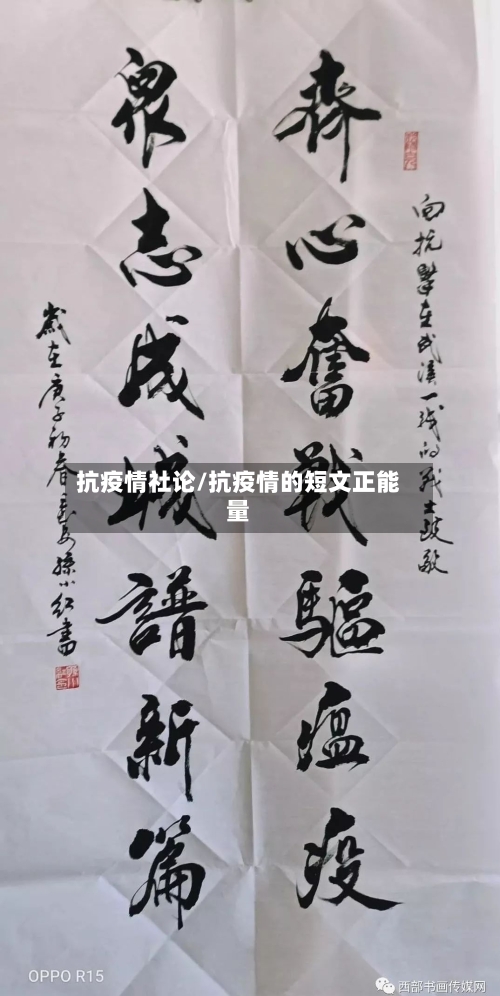 向抗击在武汉一线的战士致敬
齊心奮戰驅瘟疫
衆志成城譜新篇
歲在庚子初春 孫小红書
抗疫情社论/抗疫情的短文正能
量
OPPO R15
西部书画传媒网